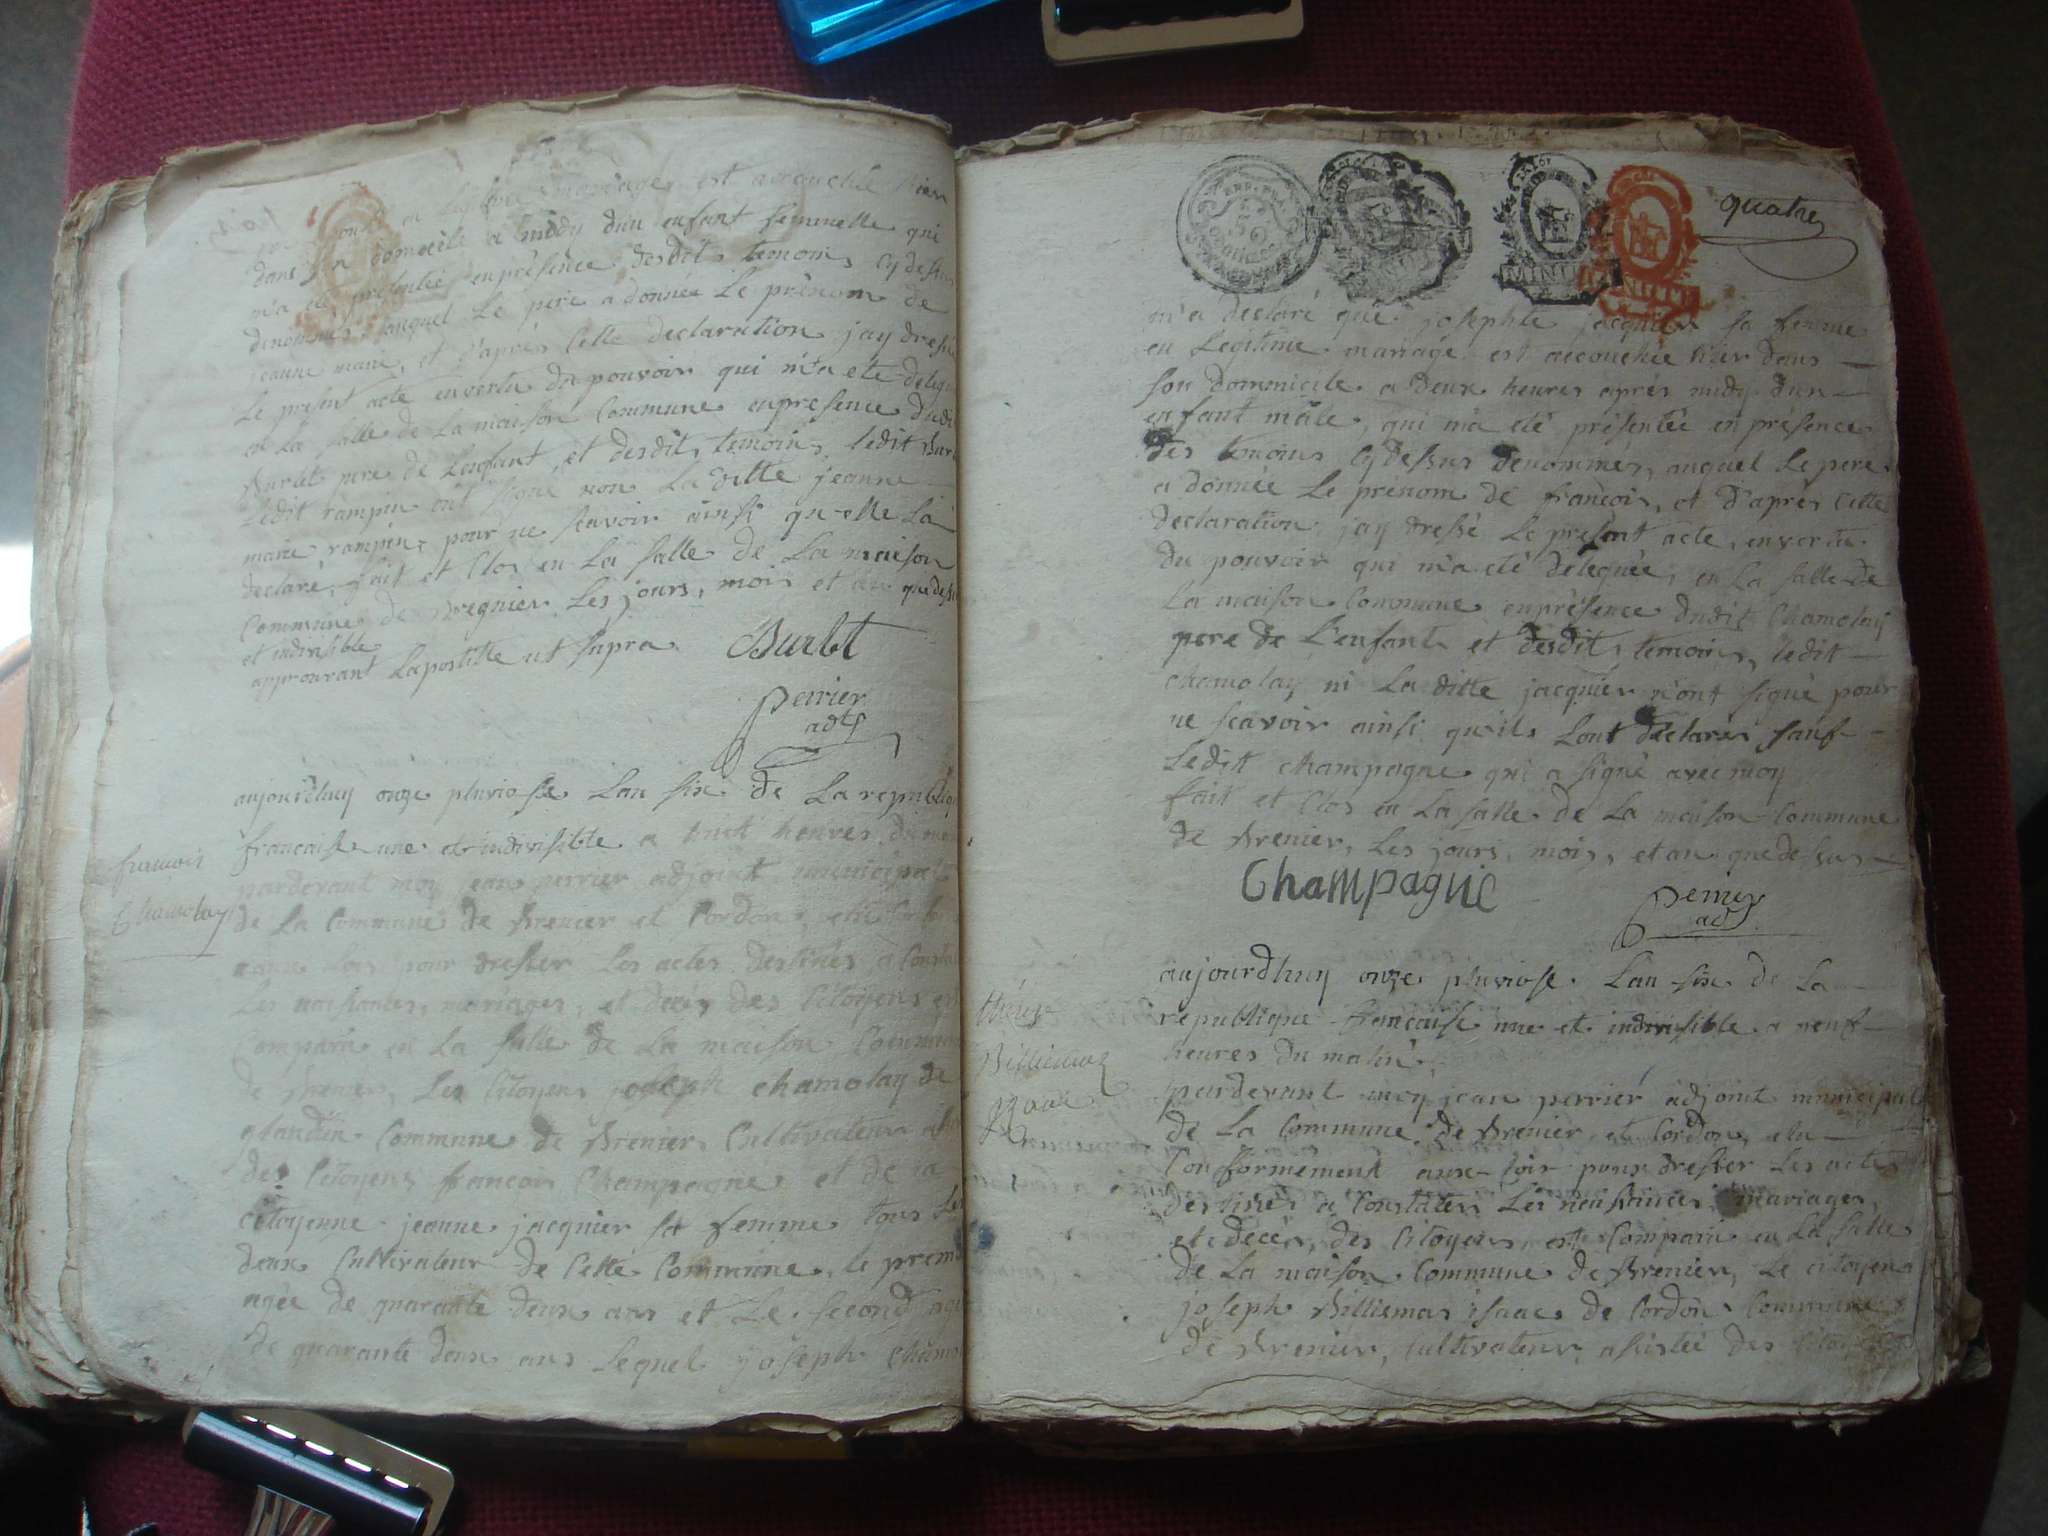 en legitime mariage est accouchée hier
dans son domicile a midy d'un enfant femmelle qui
m'a eté présentée en présence desdits temoins cy dessus
denommés, auquel le pere a donnée le prénom de
jeanne marie, et d'après cette declaration jay dressé
le present acte en vertu du pouvoir qui m'a eté delegué
en la salle de la maison commune en presence dudit
Burlet pere de l'enfant, et desdits temoins, ledit Burlet
ledit rampin ont signé non la ditte jeanne
marie rampin, pour ne scavoir ainsi qu'elle la
declaré, fait et clos en la salle de la maison
commune de Bregnier les jours, mois et an que dessus
et indivisible
approuvant lapostille ut supra Burlet
Perrier
adt
aujourdhuy onze pluviose lan six de la republique
francaise une et indivisible a huit heures du matin
francois
chamolay
pardevant moy jean perrier adjoint municipal
de la commune de Brenier et Cordon, elu
aux lois pour dresser les actes destinés a
les naissances, mariages, et decès des citoyens est
comparu en la salle de la maison commune
de Brenier, les citoyens joseph chamolay de
glandin commune de Brenier cultivateur
des citoyens francois Champagne et de la
citoyenne jeanne jacquier sa femme tous les
deux cultivateur de cette commune, le premier
agée de quarante deux ans et le second agée
de quarante deux ans lequel joseph
quatre
MINUTE
MINUTE
m'a declaré que josephte jacquier sa femme
en legitime mariage est accouchée hier dans
son dommicile a deux heures après midy d'un
enfant mâle, qui m'a eté présentée en présence
des temoins cy dessus denommés, auquel le pere
a donnée le prénom de francois, et d'après cette
declaration, jay dressé le present acte, en vertu
du pouvoir qui m'a eté deleguée, en la salle de
la maison commune en présence dudit chamolay
pere de l'enfant et desdits temoins, ledit
chamolay ni la ditte jacquier n'ont signé pour
ne scavoir ainsi qu'ils lont declarés sauf
ledit champagne qui a signé avec moy
fait et clos en la salle de la maison commune
de Brenier, les jours, mois, et an que dessus
Champagne Perrier
adt
aujourdhuy onze pluviose lan six de la
republique francaise une et indivisible a neuf
heures du matin,
Billiemaz
Isaac
pardevant moy jean perrier adjoint municipal
de la commune de Brenier et Cordon, elu
conformement aux lois pour dresser les actes
destinés a constater les naissances, mariages
et decès, des citoyens, est comparu en la salle
de la maison commune de Brenier, le citoyen
joseph Billiemas isaac de Cordon commune
de Brenier, cultivateur, assistée des